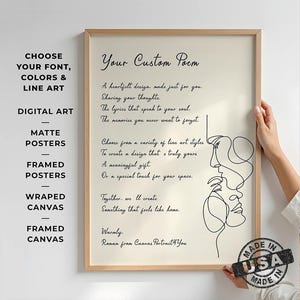 CHOOSE
YOUR FONT,
COLORS &
LINE ART
DIGITAL ART
MATTE
POSTERS
FRAMED
POSTERS
WRAPPED
CANVAS
FRAMED
CANVAS
Your Custom Poem
A heartfelt design, made just for you.
Sharing your thoughts,
The lyrics that speak to your soul.
The memories you never want to forget.
Choose from a variety of line art styles
To create a design that s truly yours
A meaningful gift.
Or a special touch for your space.
Together, we ll create
Something that feels like home.
Warmly,
from Canvas Portrait4You
MADE IN
USA
MADE IN